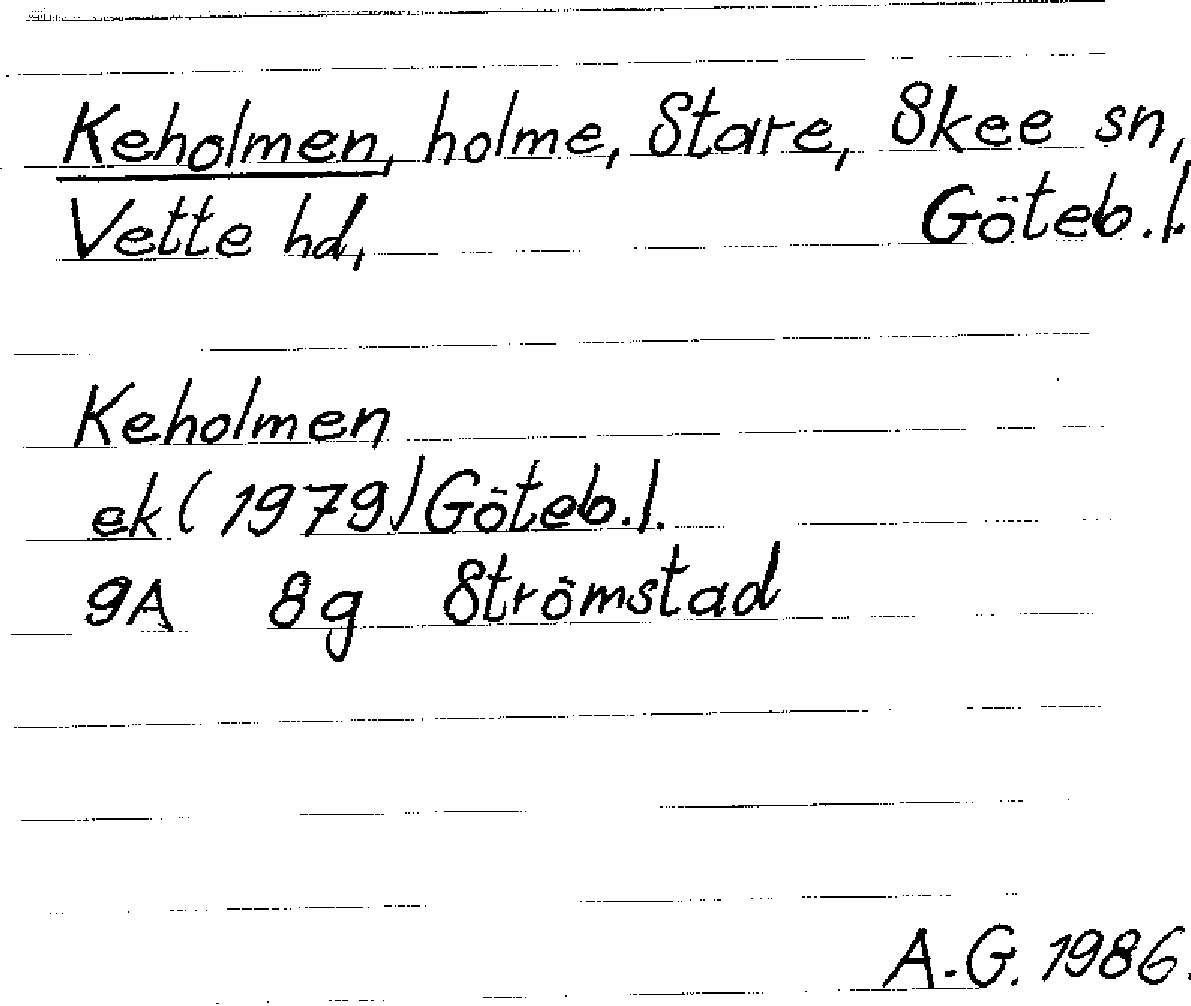 Keholmen, holme, Stare, Skee sn,
Vette hd, Göteb.l.
Keholmen
ek (1979) Göteb.l.
9A 8g Strömstad
A.G. 1986.